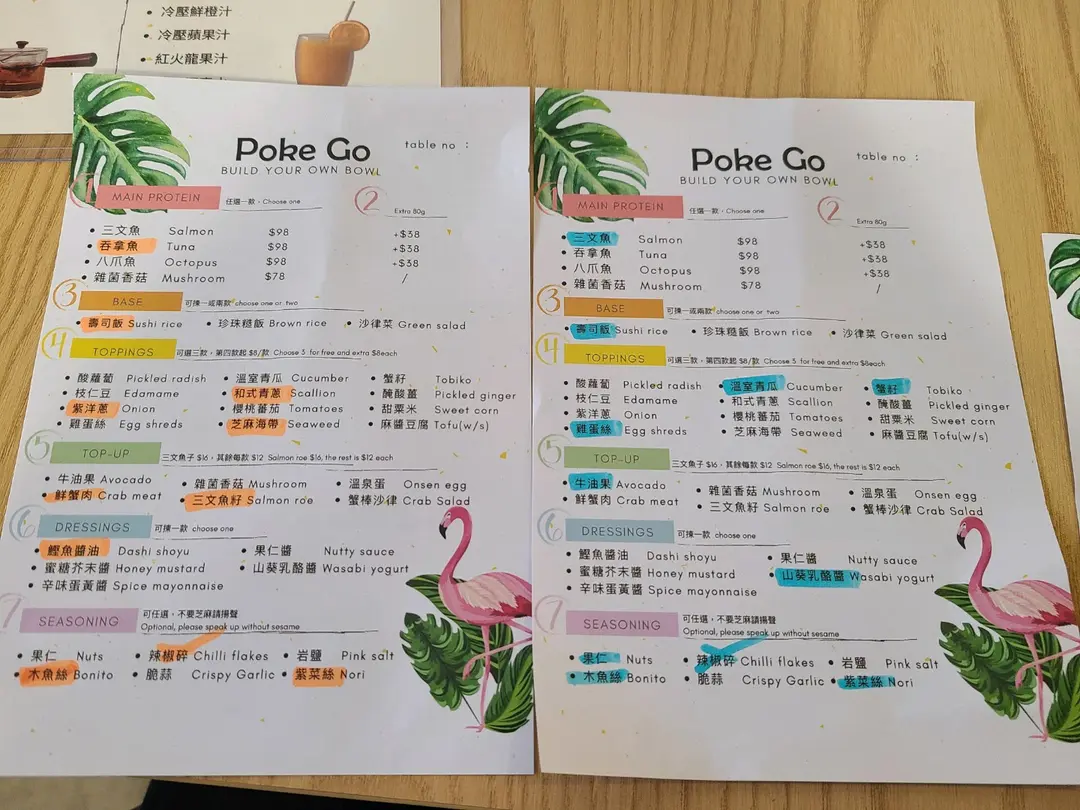 • 冷壓鮮橙汁
• 冷壓蘋果汁
• 紅火龍果汁
Poke Go
table no :
BUILD YOUR OWN BOWL
1 MAIN PROTEIN 任選一款,Choose one 2 Extra 80g
• 三文魚 Salmon $98 +$38
• 吞拿魚 Tuna $98 +$38
• 八爪魚 Octopus $98 +$38
• 雜菌香菇 Mushroom $78 /
3 BASE 可揀一或兩款 choose one or two
• 壽司飯 Sushi rice • 珍珠糙飯 Brown rice • 沙律菜 Green salad
4 TOPPINGS 可選三款,第四款起 $8/款 Choose 3 for free and extra $8each
• 酸蘿蔔 Pickled radish • 溫室青瓜 Cucumber • 蟹籽 Tobiko
• 枝仁豆 Edamame • 和式青蔥 Scallion • 醃酸薑 Pickled ginger
• 紫洋蔥 Onion • 櫻桃蕃茄 Tomatoes • 甜粟米 Sweet corn
• 雞蛋絲 Egg shreds • 芝麻海帶 Seaweed • 麻醬豆腐 Tofu(w/s)
5 TOP-UP 三文魚子 $16,其餘每款 $12 Salmon roe $16, the rest is $12 each
• 牛油果 Avocado • 雜菌香菇 Mushroom • 溫泉蛋 Onsen egg
• 鮮蟹肉 Crab meat • 三文魚籽 Salmon roe • 蟹棒沙律 Crab Salad
6 DRESSINGS 可揀一款 choose one
• 鰹魚醬油 Dashi shoyu • 果仁醬 Nutty sauce
• 蜜糖芥末醬 Honey mustard • 山葵乳酪醬 Wasabi yogurt
• 辛味蛋黃醬 Spice mayonnaise
7 SEASONING 可任選,不要芝麻請揚聲
Optional, please speak up without sesame
• 果仁 Nuts • 辣椒碎 Chilli flakes • 岩鹽 Pink salt
• 木魚絲 Bonito • 脆蒜 Crispy Garlic • 紫菜絲 Nori
Poke Go
table no :
BUILD YOUR OWN BOWL
1 MAIN PROTEIN 任選一款,Choose one 2 Extra 80g
• 三文魚 Salmon $98 +$38
• 吞拿魚 Tuna $98 +$38
• 八爪魚 Octopus $98 +$38
• 雜菌香菇 Mushroom $78 /
3 BASE 可揀一或兩款 choose one or two
• 壽司飯 Sushi rice • 珍珠糙飯 Brown rice • 沙律菜 Green salad
4 TOPPINGS 可選三款,第四款起 $8/款 Choose 3 for free and extra $8each
• 酸蘿蔔 Pickled radish • 溫室青瓜 Cucumber • 蟹籽 Tobiko
• 枝仁豆 Edamame • 和式青蔥 Scallion • 醃酸薑 Pickled ginger
• 紫洋蔥 Onion • 櫻桃蕃茄 Tomatoes • 甜粟米 Sweet corn
• 雞蛋絲 Egg shreds • 芝麻海帶 Seaweed • 麻醬豆腐 Tofu(w/s)
5 TOP-UP 三文魚子 $16,其餘每款 $12 Salmon roe $16, the rest is $12 each
• 牛油果 Avocado • 雜菌香菇 Mushroom • 溫泉蛋 Onsen egg
• 鮮蟹肉 Crab meat • 三文魚籽 Salmon roe • 蟹棒沙律 Crab Salad
6 DRESSINGS 可揀一款 choose one
• 鰹魚醬油 Dashi shoyu • 果仁醬 Nutty sauce
• 蜜糖芥末醬 Honey mustard • 山葵乳酪醬 Wasabi yogurt
• 辛味蛋黃醬 Spice mayonnaise
7 SEASONING 可任選,不要芝麻請揚聲
Optional, please speak up without sesame
• 果仁 Nuts • 辣椒碎 Chilli flakes • 岩鹽 Pink salt
• 木魚絲 Bonito • 脆蒜 Crispy Garlic • 紫菜絲 Nori